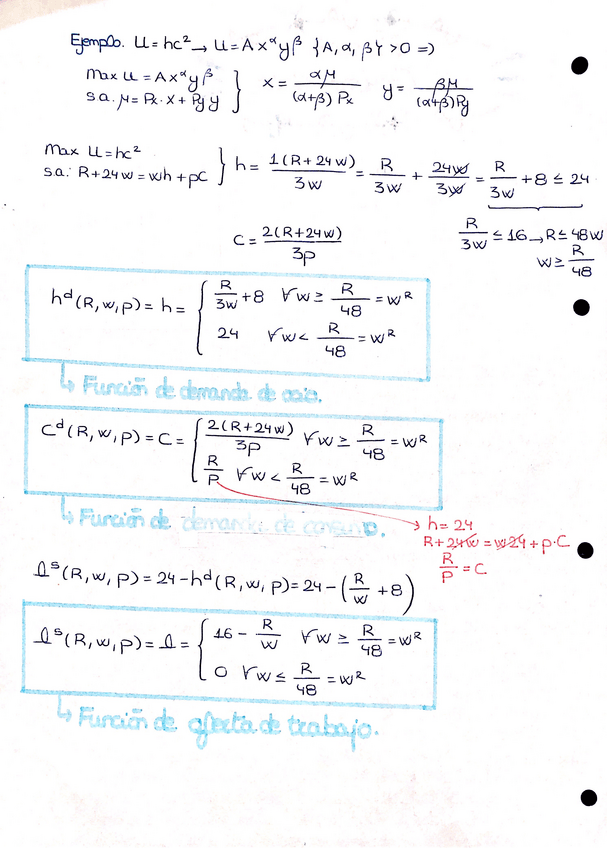 Ejemplo. U=hc² → U=Ax^αy^β {A, α, β} >0 ⇒)
Max U = Ax^αy^β
s.a. μ = Px·x + Py y } x = αμ/((α+β) Px) y = βμ/((α+β)Py)
Max U=hc²
s.a: R+24w = wh+pC } h = 1(R+24w)/3w = R/3w + 24w/3w = R/3w + 8 ≤ 24
R/3w ≤ 16 → R ≤ 48w
w ≥ R/48
C = 2(R+24w)/3p
h^d(R,w,p) = h = { R/3w +8 ∀w ≥ R/48 = w^R
24 ∀w < R/48 = w^R
↳ Función de demanda de ocio.
C^d(R,w,p) = C = { 2(R+24w)/3p ∀w ≥ R/48 = w^R
R/P ∀w < R/48 = w^R
↳ Función de demanda de consumo.
→ h=24
R+24w = w24 + p·C
R/P = C
l^s(R,w,p) = 24 - h^d(R,w,p) = 24 - (R/w + 8)
l^s(R,w,p) = l = { 16 - R/w ∀w ≥ R/48 = w^R
0 ∀w ≤ R/48 = w^R
↳ Función de oferta de trabajo.